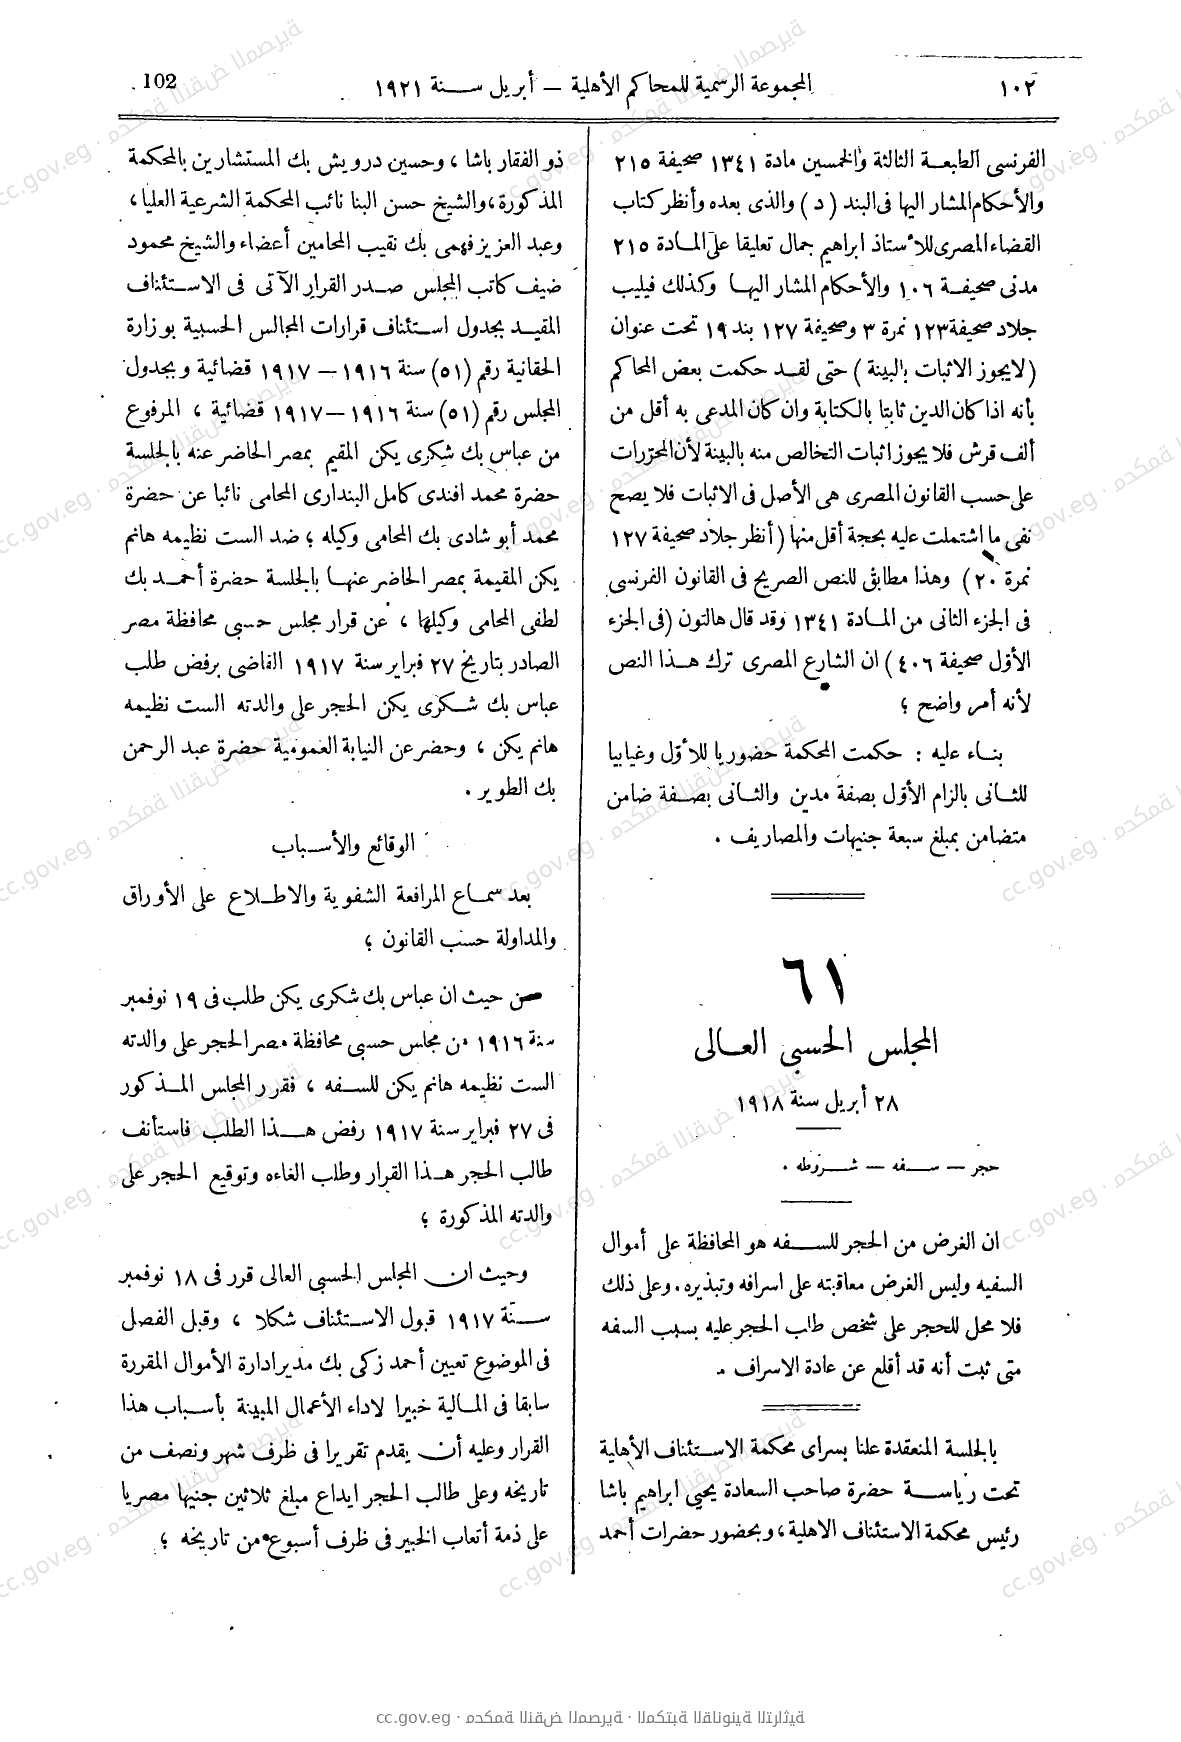 ١٠٢ المجموعة الرسمية للمحاكم الأهلية — أبريل سنة ١٩٢١ 102
الفرنسى الطبعة الثالثة والخمسين مادة ١٣٤١ صحيفة ٢١٥
والأحكام المشار اليها فى البند ( د ) والذى بعده وأنظر كتاب
القضاء المصرى للأستاذ ابراهيم جمال تعليقا على المادة ٢١٥
مدنى صحيفة ١٠٦ والأحكام المشار اليها وكذلك فيليب
جلاد صحيفة ١٢٣ نمرة ٣ وصحيفة ١٢٧ بند ١٩ تحت عنوان
( لا يجوز الاثبات بالبينة ) حتى لقد حكمت بعض المحاكم
بأنه اذا كان الدين ثابتا بالكتابة وان كان المدعى به أقل من
ألف قرش فلا يجوز اثبات التخالص منه بالبينة لأن المحررات
على حسب القانون المصرى هى الأصل فى الاثبات فلا يصح
نفى ما اشتملت عليه بحجة أقل منها ( أنظر جلاد صحيفة ١٢٧
نمرة ٢٠ ) وهذا مطابق للنص الصريح فى القانون الفرنسى
فى الجزء الثانى من المادة ١٣٤١ وقد قال هالتون ( فى الجزء
الأول صحيفة ٤٠٦ ) ان الشارع المصرى ترك هذا النص
لأنه أمر واضح ؛
بناء عليه : حكمت المحكمة حضوريا للأول وغيابيا
للثانى بالزام الأول بصفة مدين والثانى بصفة ضامن
متضامن بمبلغ سبعة جنيهات والمصاريف .
٦١
المجلس الحسبى العالى
٢٨ أبريل سنة ١٩١٨
حجر — سفه — شروطه .
ان الغرض من الحجر للسفه هو المحافظة على أموال
السفيه وليس الغرض معاقبته على اسرافه وتبذيره . وعلى ذلك
فلا محل للحجر على شخص طلب الحجر عليه بسبب السفه
متى ثبت أنه قد أقلع عن عادة الاسراف .
بالجلسة المنعقدة علنا بسراى محكمة الاستئناف الأهلية
تحت رياسة حضرة صاحب السعادة يحيى ابراهيم باشا
رئيس محكمة الاستئناف الاهلية ، وبحضور حضرات أحمد
ذو الفقار باشا ، وحسين درويش بك المستشارين بالمحكمة
المذكورة ، والشيخ حسن البنا نائب المحكمة الشرعية العليا ،
وعبد العزيز فهمى بك نقيب المحامين أعضاء والشيخ محمود
ضيف كاتب المجلس صدر القرار الآتى فى الاستئناف
المقيد بجدول استئناف قرارات المجالس الحسبية بوزارة
الحقانية رقم (٥١) سنة ١٩١٦ — ١٩١٧ قضائية وبجدول
المجلس رقم (٥١) سنة ١٩١٦ — ١٩١٧ قضائية ، المرفوع
من عباس بك شكرى يكن المقيم بمصر الحاضر عنه بالجلسة
حضرة محمد افندى كامل البندارى المحامى نائبا عن حضرة
محمد أبو شادى بك المحامى وكيله ؛ ضد الست نظيمه هانم
يكن المقيمة بمصر الحاضر عنها بالجلسة حضرة أحمد بك
لطفى المحامى وكيلها ، عن قرار مجلس حسبى محافظة مصر
الصادر بتاريخ ٢٧ فبراير سنة ١٩١٧ القاضى برفض طلب
عباس بك شكرى يكن الحجر على والدته الست نظيمه
هانم يكن ، وحضر عن النيابة العمومية حضرة عبد الرحمن
بك الطوير .
الوقائع والأسباب
بعد سماع المرافعة الشفوية والاطلاع على الأوراق
والمداولة حسب القانون ؛
من حيث ان عباس بك شكرى يكن طلب فى ١٩ نوفمبر
سنة ١٩١٦ من مجلس حسبى محافظة مصر الحجر على والدته
الست نظيمه هانم يكن للسفه ، فقرر المجلس المذكور
فى ٢٧ فبراير سنة ١٩١٧ رفض هذا الطلب فاستأنف
طالب الحجر هذا القرار وطلب الغاءه وتوقيع الحجر على
والدته المذكورة ؛
وحيث ان المجلس الحسبى العالى قرر فى ١٨ نوفمبر
سنة ١٩١٧ قبول الاستئناف شكلا ، وقبل الفصل
فى الموضوع تعيين أحمد زكى بك مدير ادارة الأموال المقررة
سابقا فى المالية خبيرا لاداء الأعمال المبينة بأسباب هذا
القرار وعليه أن يقدم تقريرا فى ظرف شهر ونصف من
تاريخه وعلى طالب الحجر ايداع مبلغ ثلاثين جنيها مصريا
على ذمة أتعاب الخبير فى ظرف أسبوع من تاريخه ؛
cc.gov.eg · محكمة النقض المصرية · المكتبة القانونية التراثية